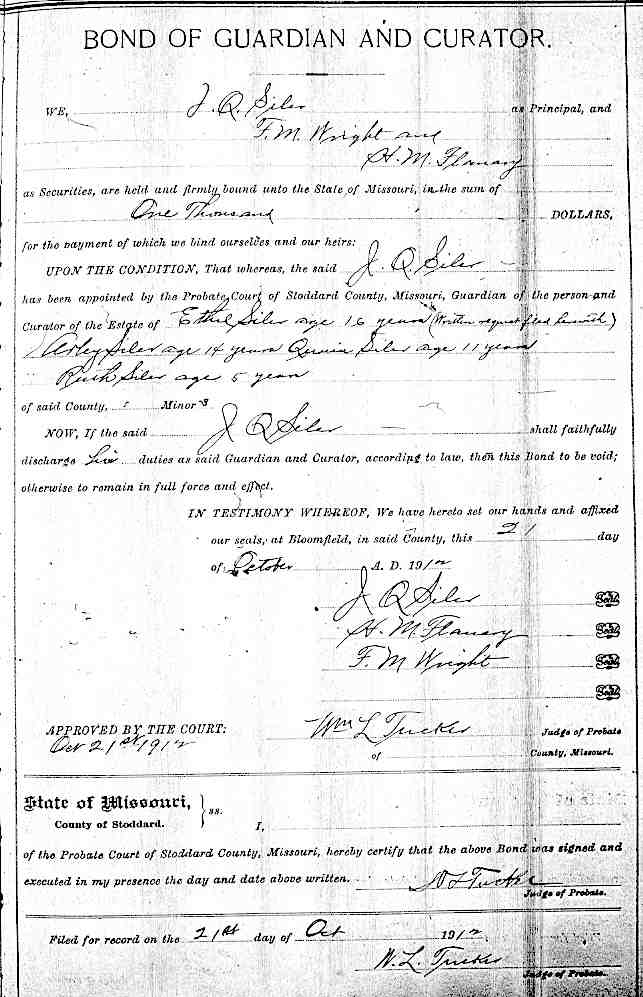 BOND OF GUARDIAN AND CURATOR.
WE, J. Q. Siler as Principal, and
F. M. Wright and
H. M. Flanary
as Securities, are held and firmly bound unto the State of Missouri, in the sum of
One Thousand DOLLARS,
for the payment of which we bind ourselves and our heirs:
UPON THE CONDITION, That whereas, the said J. Q. Siler
has been appointed by the Probate Court of Stoddard County, Missouri, Guardian of the person and
Curator of the Estate of Ethel Siler age 16 years (Written request filed herewith)
Arley Siler age 14 years Siler age 11 years
Ruth Siler age 5 year
of said County, Minors
NOW, If the said J Q Siler shall faithfully
discharge his duties as said Guardian and Curator, according to law, then this Bond to be void;
otherwise to remain in full force and effect.
IN TESTIMONY WHEREOF, We have hereto set our hands and affixed
our seals, at Bloomfield, in said County, this 21 day
of October A. D. 1912
J Q Siler Seal
H. M. Flanary Seal
F. M Wright Seal
Seal
APPROVED BY THE COURT: Wm L Tucker Judge of Probate
Oct 21st 1912 of County, Missouri.
State of Missouri, ss.
County of Stoddard. I,
of the Probate Court of Stoddard County, Missouri, hereby certify that the above Bond was signed and
executed in my presence the day and date above written. W L Tucker
Judge of Probate.
Filed for record on the 21st day of Oct 1912
W. L. Tucker
Judge of Probate.